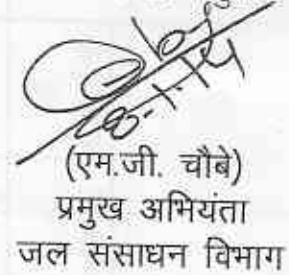 28.1.14
(एम.जी. चौबे)
प्रमुख अभियंता
जल संसाधन विभाग